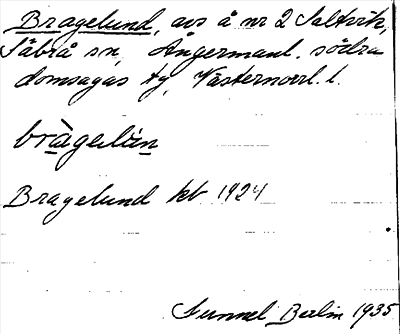 Bragelund, avs å nr 2 Saltvik,
Säbrå sn, Ångermanl. södra
domsagas tg, Västernorrl. l.
bràgelùn
Bragelund kb 1924
Gunnel Berlin 1935